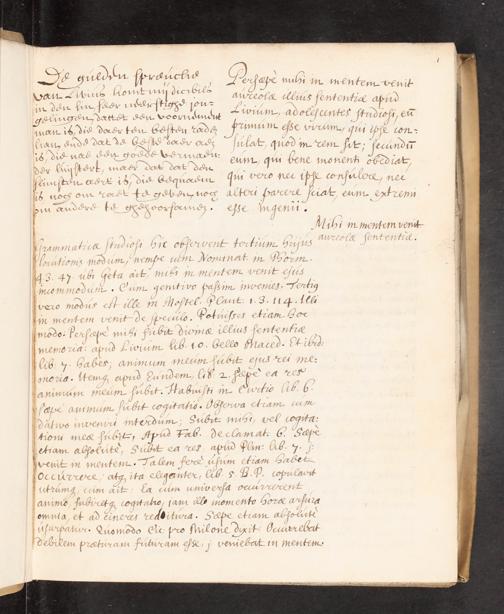 De gulden spreuche
van Livius komt mij dicwils
in den sin, seer neerstighe jon-
gelingen, dattet een voornemend
man is, die daer ten besten raden
kan, ende dat de beste daer aen
is, die nae een goede vermaen-
der luystert, maer dat dat den
is noch raet te geven, noch
om andere te ghehoorsamen.
Persæpe mihi in mentem venit
aureolæ illius sententiæ apud
Livium, adolescentes studiosi, eũ
primum esse virum, qui ipse con-
sulat, quod in rem sit; secundũ
eum, qui bene monenti obediat,
qui vero nec ipse consulere, nec
alteri parere sciat, eum extremi
esse ingenii.
Mihi in mentem venit
aureolæ sententiæ.
Grammaticæ studiosi hic observent tertium hujus
locutionis modum, nempe cum Nominat. in Phorm.
43. 47. ubi Geta ait: mihi in mentem venit ejus
incommodum. Cum genitivo passim invenies. Tertig
vero modus est ille in Mostel. Plaut. 1. 3. 114. Illi
in mentem venit de speculo. Potuisses etiam hoc
modo. Persæpe mihi subit divinæ illius sententiæ
memoria: apud Livium lib. 10. Bello Maced. Et ibid.
lib. 7. habes, animum meum subit ejus rei me-
moria. Itemq, apud Eundem, lib. 2. sæpe ea res
animum meum subit. Habuisti in Curtio lib. 6.
sæpe animum subit cogitatio. Observa etiam cum
dativo inveniri interdum; Subit mihi, vel cogita-
tioni meæ subit, Apud Fab. declamat. 6. Sæpe
etiam absolutè, Subit ea res, apud Plin. lib. 7. j.
venit in mentem. Talem ferè usum etiam habet
Occurrere, atq, ita eleganter, lib. 5. B. P. copulavit
utrumq, cum ait: Ea cum universa occurrerent
animo, subiretq, cogitatio, jam illo momento horæ arsura
omnia, et ad cineres reditura. Sæpe etiam absolutè
usurpatur. Quomodo Cic pro Milone dixit: Occurrebat
debilem præturam futuram esse, j. veniebat in mentem.